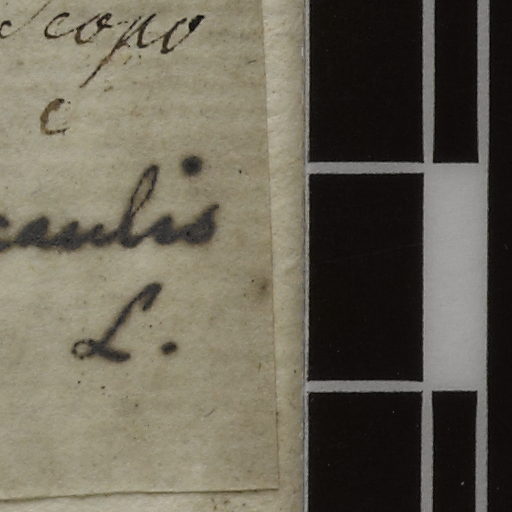 Scopo
c
caulis
L.